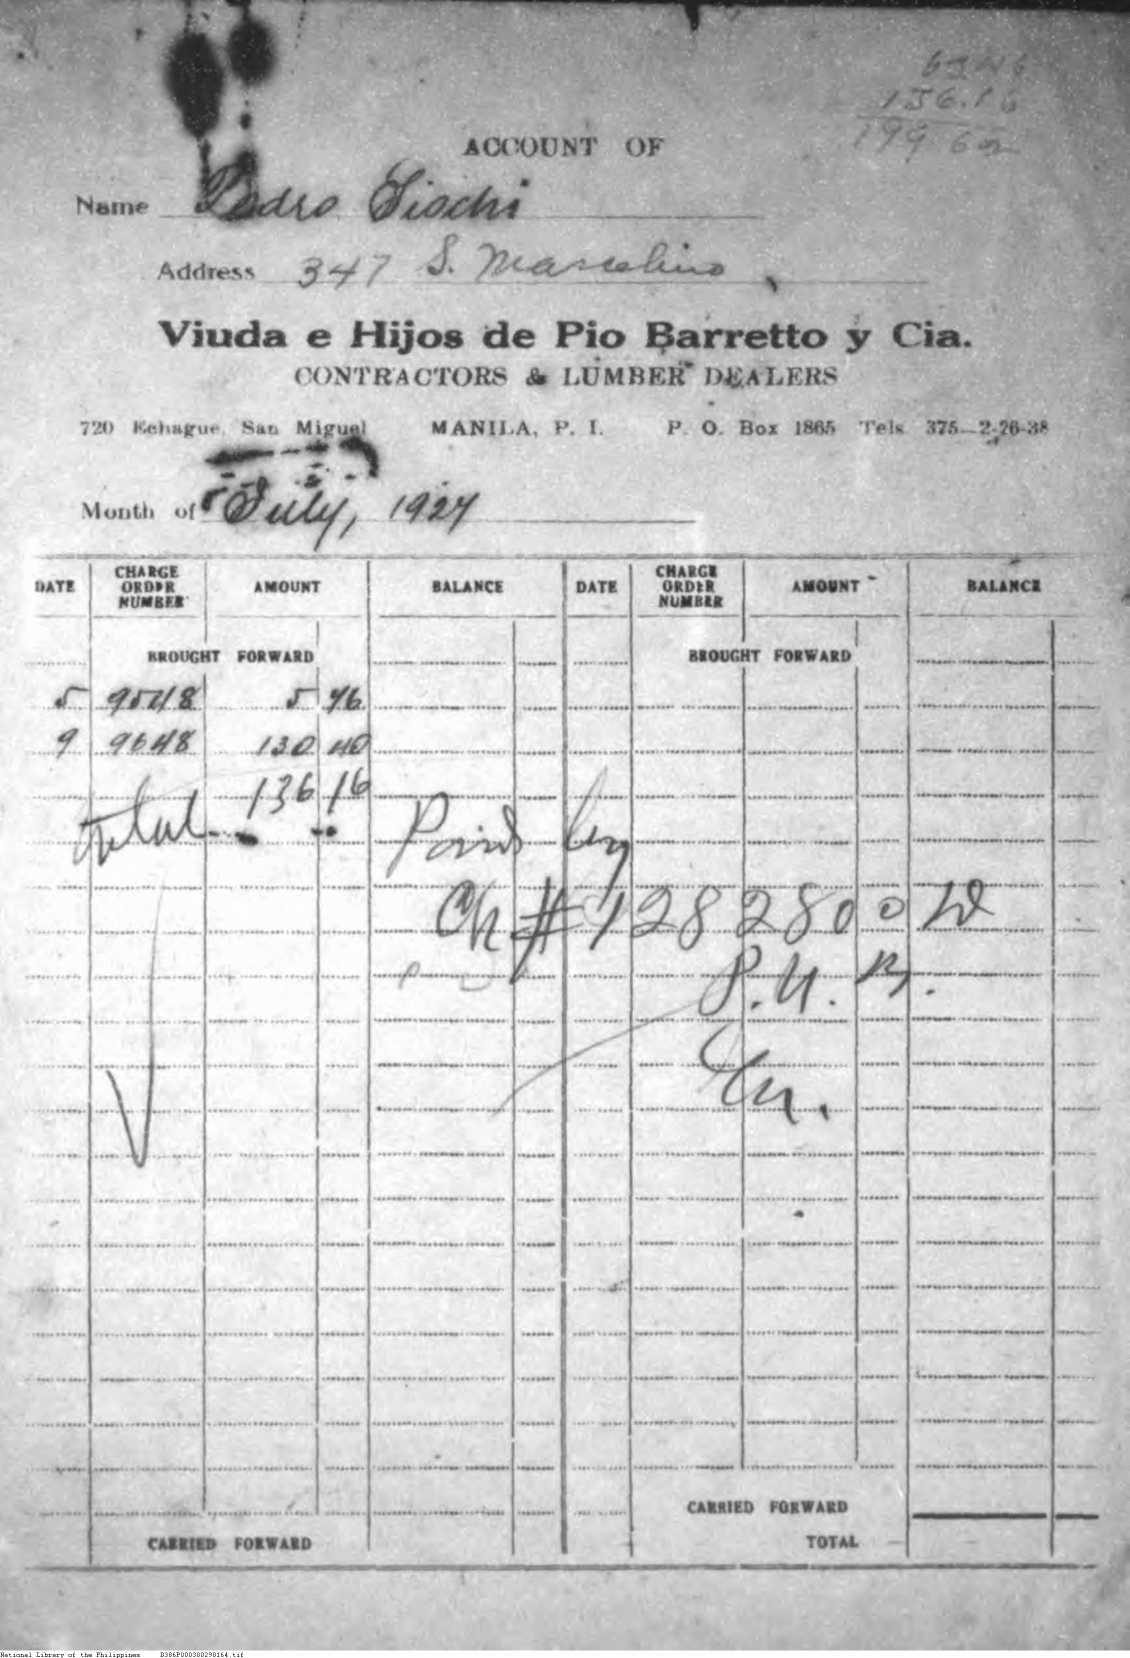 136.16
199 62
ACCOUNT OF
Name Pedro Siochi
Address 347 S. Marcelino
Viuda e Hijos de Pio Barretto y Cia.
CONTRACTORS & LUMBER DEALERS
720 Echague, San Miguel MANILA, P. I. P. O. Box 1865 Tels. 375—2-26-38
Month of July, 1927
DATE CHARGE ORDER NUMBER AMOUNT BALANCE DATE CHARGE ORDER NUMBER AMOUNT BALANCE
BROUGHT FORWARD BROUGHT FORWARD
5 9548 5 76
9 9648 130 40
total 136 16
Paid by
Ch # 128280 0 W
P.N.B.
CARRIED FORWARD
CARRIED FORWARD
TOTAL
National Library of the Philippines D386P000300298164.tif